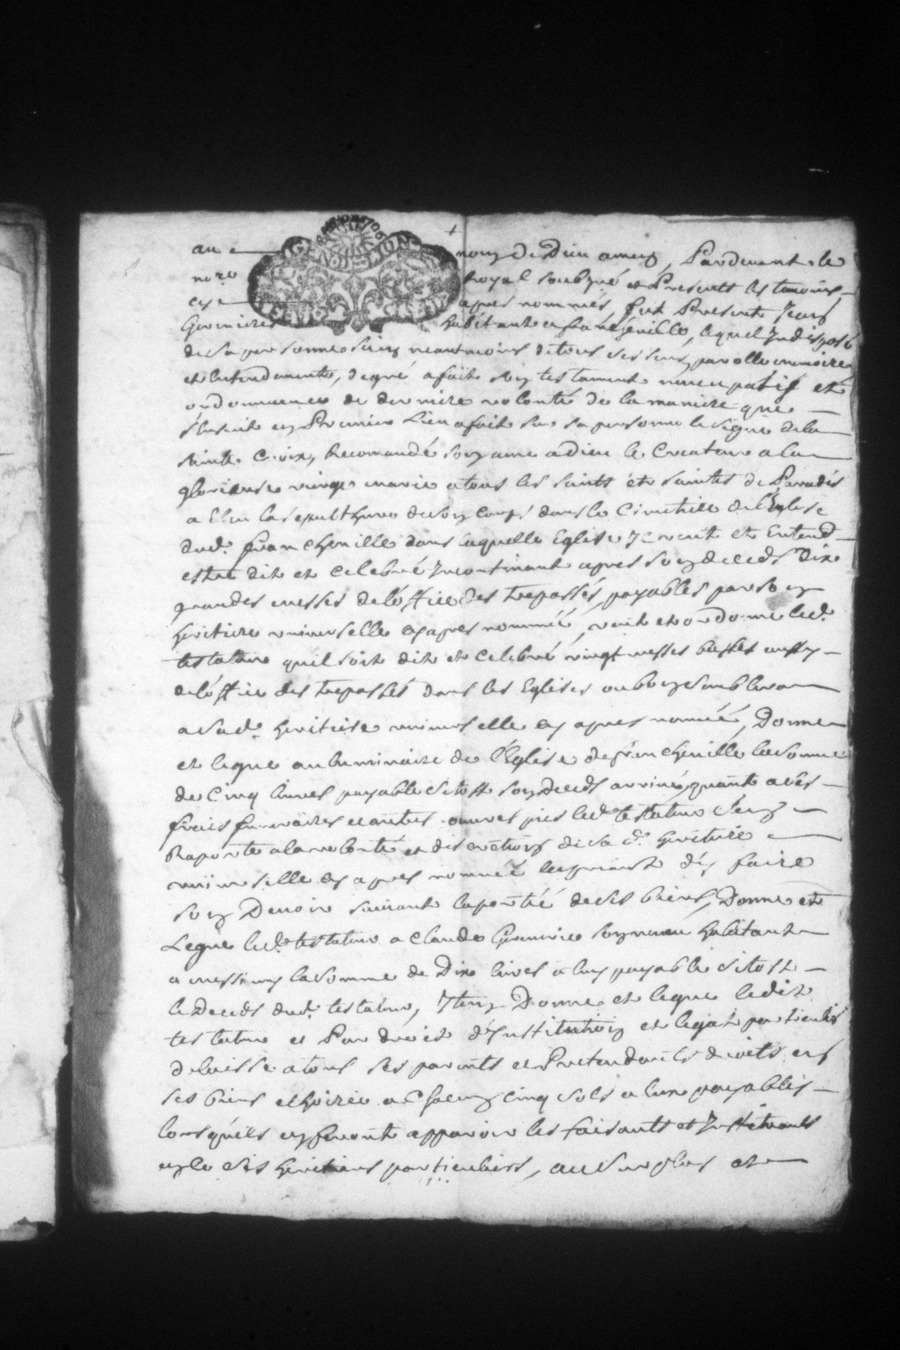 au nom de Dieu amen, Pardevant le
no.re Royal soubsigné et Presents les temoins
cy apres nommés fut Present Jean
Grenier habitant a francheville, lequel Indisposé
de sa personne sain neantmoins de tous ses sens, parolle memoire
et entendement, de gré a fait son testament nuncupatif et
ordonnance de derniere volonté de la maniere que
s'ensuit en Premier Lieu a fait sur sa personne le signe de la
sainte Croix, Recomandé son ame a dieu le Createur a la
glorieuse vierge marie a tous les saints et saintes de Paradis
a Elu la sepulthure de son corps dans le Cimetiere de l'Eglise
dud. francheville dans laquelle Eglise Il veut et Entend
estre dit et celebré Incontinant apres son deceds Dix
grandes messes de l'office des trepassés, payables par son
heritiere universelle cy apres nommée, veut et ordonne led.
testateur qu'il soit dit et celebré vingt messes basses aussy
de l'office des trepassés dans les Eglises ou bon semblera
a sad. heritiere universelle cy apres nommée, Donne
et legue au luminaire de l'Eglise de francheville la somme
de Cinq livres payable sitost son deceds arrivé, quant a ses
frais funeraires et autres œuvres pies led. testateur s'en
Raporte a la volonté et discretion de sa d. heritiere
universelle cy apres nommée la priant d'en faire
son Devoir suivant la portée de ses biens, Donne et
Legue led. testateur a Claude Grenier son neveu habitant
a messimy la somme de Dix livres a luy payable sitost
le Deceds dud. testateur, Item Donne et legue ledit
testateur et Par droit d'Institution et legat particulier
delaisse a tous ses parents et Pretendants droits en
ses biens et hoirie a Chacun cinq sols a eux payables
lorsqu'ils en feront apparoir les faisants et Instituants
en ce ses heritiers particuliers, au surplus et